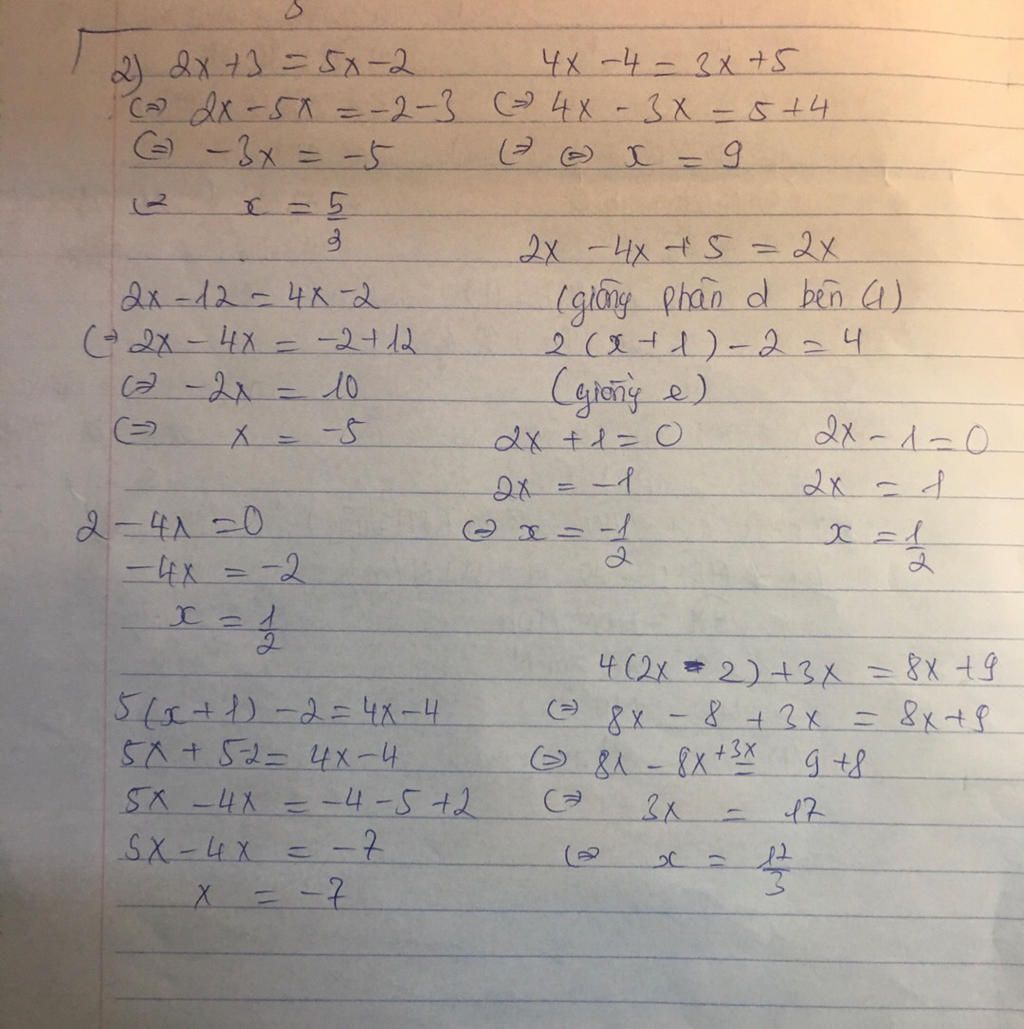 2) 2x+3 = 5x-2
(=) 2x - 5x = -2-3
(=) -3x = -5
x = 5/3
4x - 4 = 3x + 5
(=) 4x - 3x = 5 + 4
(=) (=) x = 9
2x - 12 = 4x - 2
(=) 2x - 4x = -2 + 12
(=) -2x = 10
(=) x = -5
2x - 4x + 5 = 2x
(giống phần d bên (1)
2(x+1) - 2 = 4
(giống e)
2 - 4x = 0
-4x = -2
x = 1/2
2x + 1 = 0
2x = -1
(=) x = -1/2
2x - 1 = 0
2x = 1
x = 1/2
5(x+1) - 2 = 4x - 4
5x + 5-2 = 4x - 4
5x - 4x = -4 - 5 + 2
5x - 4x = -7
x = -7
4(2x - 2) + 3x = 8x + 9
(=) 8x - 8 + 3x = 8x + 9
(=) 8x - 8x +3x = 9 + 8
(=) 3x = 17
(=) x = 17/3